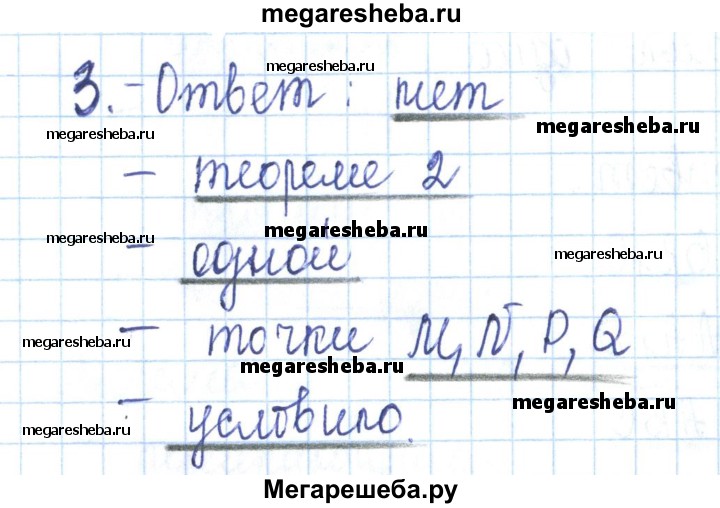 megaresheba.ru
megaresheba.ru
3. - Ответ: нет
megaresheba.ru
megaresheba.ru
- теореме 2
megaresheba.ru
megaresheba.ru
- одной
megaresheba.ru
megaresheba.ru
- точки M, N, P, Q
megaresheba.ru
megaresheba.ru
- условию.
megaresheba.ru
Мегарешеба.ру